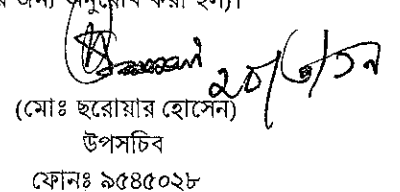 জন্য অনুরোধ করা হল।
(মোঃ ছরোয়ার হোসেন)
উপসচিব
ফোনঃ ৯৫৪৫০২৮